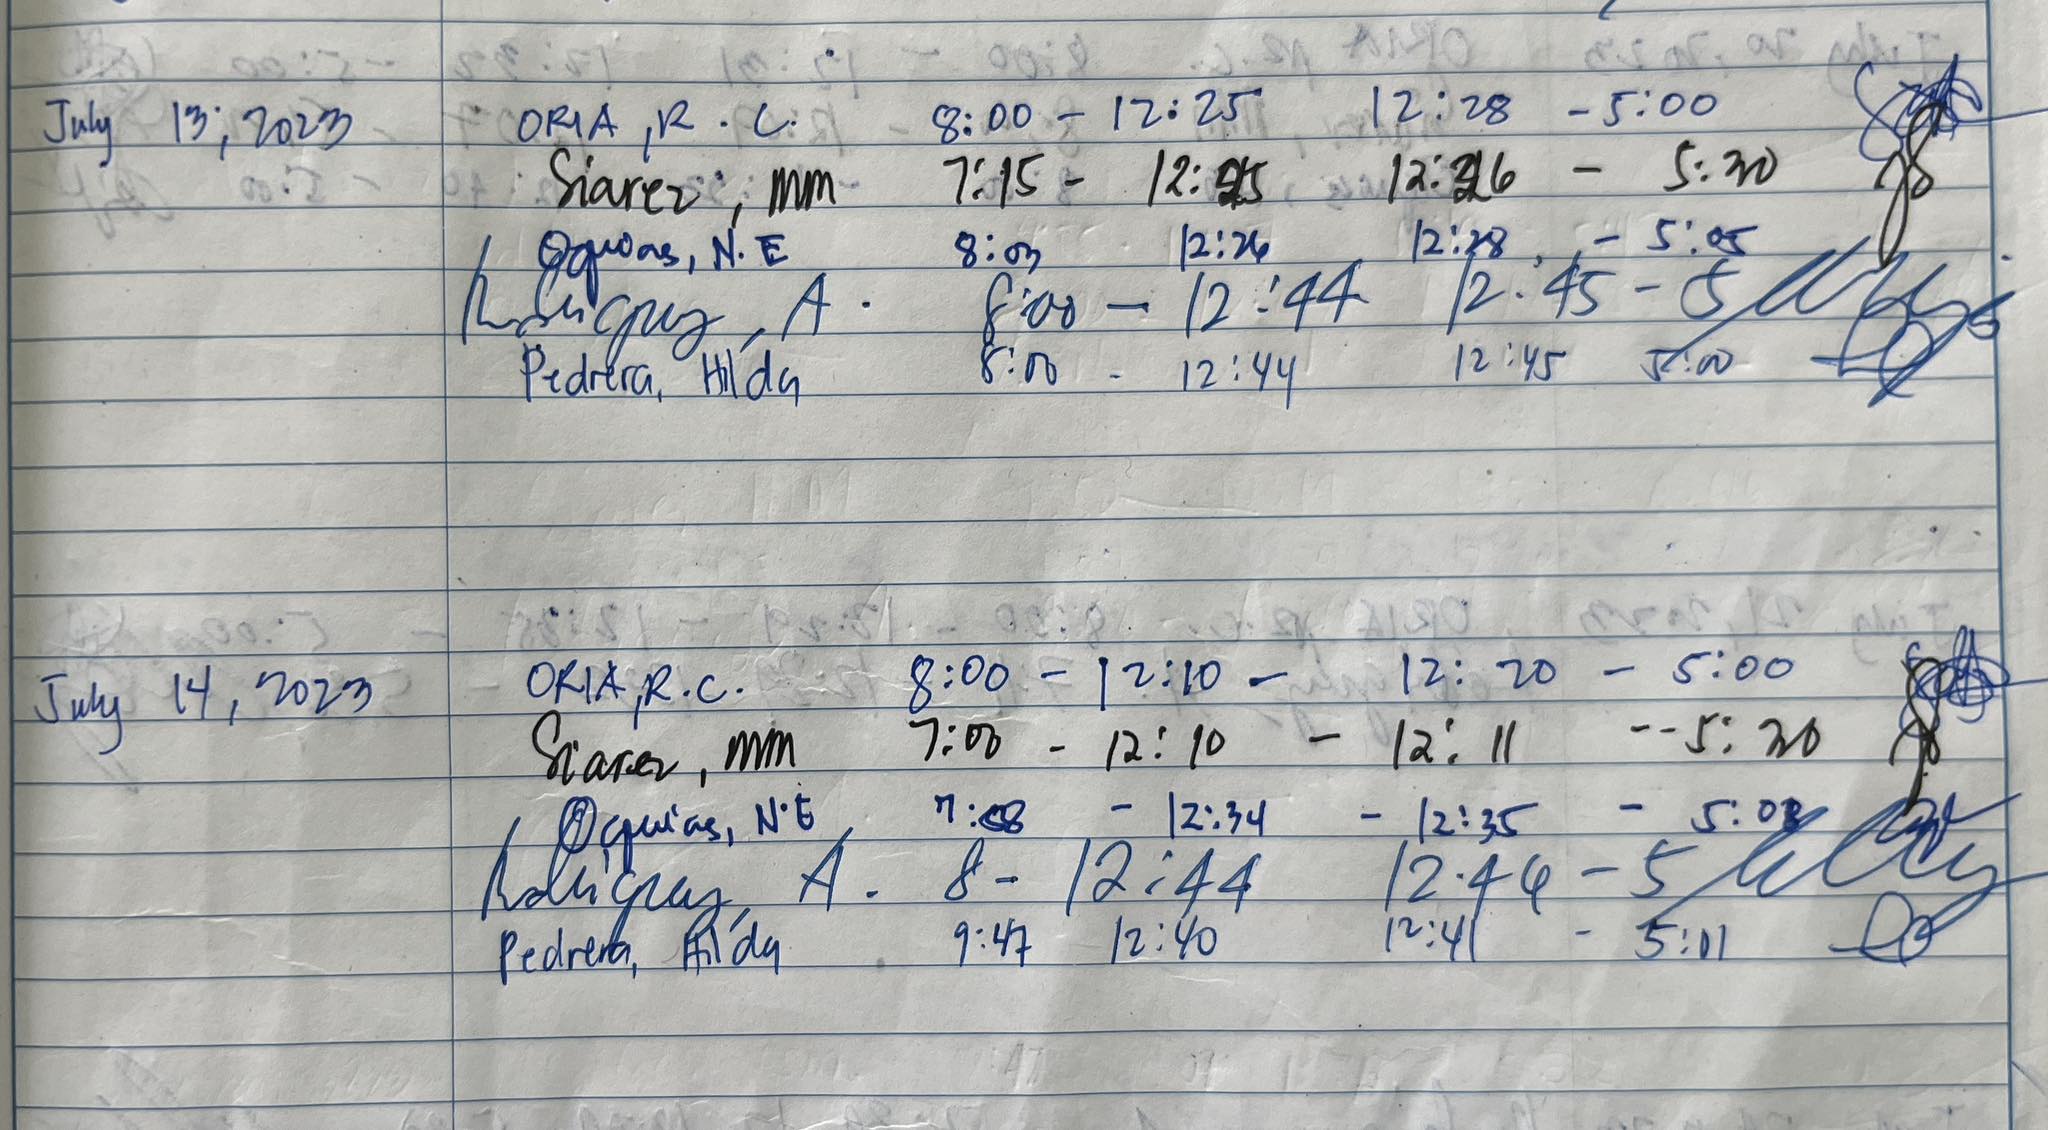 July 13, 2023 ORIA, R. C. 8:00 - 12:25 12:28 - 5:00
Siarez, MM 7:15 - 12:25 12:26 - 5:30
Oquias, N.E 8:03 12:26 12:28 - 5:05
A. 8:00 - 12:44 12:45 - 5
Pedrera, Hilda 8:00 - 12:44 12:45 5:00
July 14, 2023 ORIA, R.C. 8:00 - 12:10 - 12:20 - 5:00
Siarez, MM 7:00 - 12:10 - 12:11 -- 5:30
Oquias, N.E 7:58 - 12:34 - 12:35 - 5:03
A. 8 - 12:44 12:46 - 5
Pedrera, Hilda 9:47 12:40 12:41 - 5:01